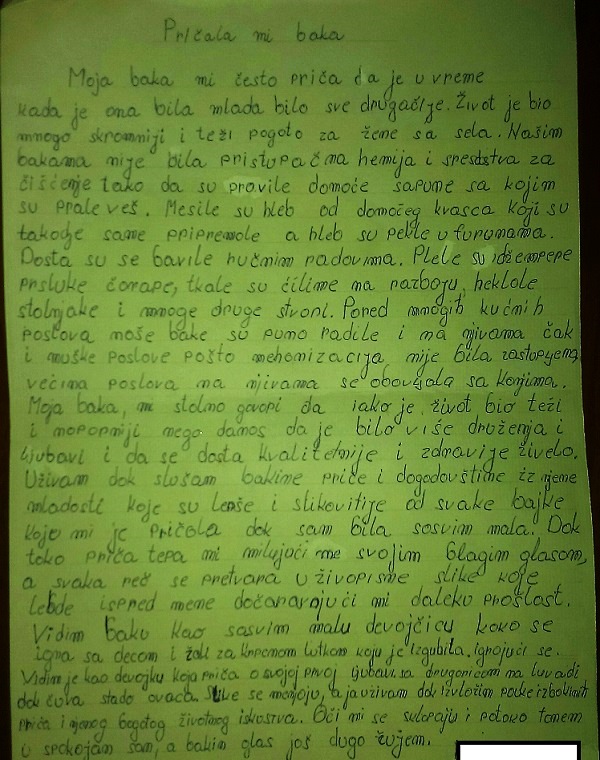 Pričala mi baka
Moja baka mi često priča da je u vreme
kada je ona bila mlada bilo sve drugačije. Život je bio
mnogo skromniji i teži pogoto za žene sa sela. Našim
bakama nije bila pristupačna hemija i sresdstva za
čišćenje tako da su pravile domaće sapune sa kojim
su prale veš. Mesile su hleb od domaćeg kvasca koji su
takodje same pripremale a hleb su pekle u furunama.
Dosta su se bavile ručnim radovima. Plele su džempere
prsluke čarape, tkale su ćilime na razboju, heklale
stolnjake i mnoge druge stvari. Pored mnogih kućnih
poslova naše bake su puno radile i na njivama čak
i muške poslove pošto mehanizacija nije bila zastupljena
većina poslova na njivama se obavljala sa konjima.
Moja baka, mi stalno govori da iako je život bio teži
i naporniji nego danas da je bilo više druženja i
ljubavi i da se dosta kvalitetnije i zdravije živelo.
Uživam dok slušam bakine priče i dogodovštine iz njene
mladosti koje su lepše i slikovitije od svake bajke
koju mi je pričala dok sam bila sasvim mala. Dok
tako priča tepa mi milujući me svojim blagim glasom,
a svaka reč se pretvara u živopisne slike koje
lebde ispred mene dočaravajući mi daleku prošlost.
Vidim baku kao sasvim malu devojčicu kako se
igra sa decom i žali za krpenom lutkom koju je izgubila, igrajući se.
Vidim je kao devojku koja priča o svojoj prvoj ljubavi sa drugaricom na livadi
dok čuva stado ovaca. Slike se menjaju, a ja uživam dok izvlačim pouke iz bakinih
priča i njenog bogatog životnog iskustva. Oči mi se sklapaju i polako tonem
u spokojan san, a bakin glas još dugo čujem.